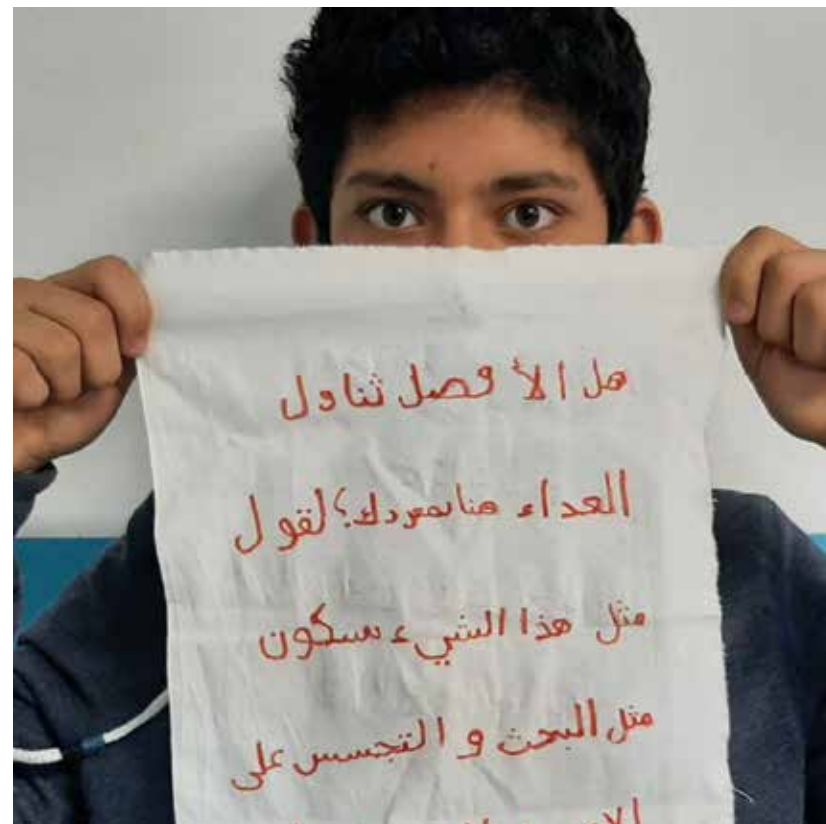 هل الأ فصل ثناول
العداء هنا بمفردك؟ لقول
مثل هذا الشيء سكون
مثل البحث و التجسس على